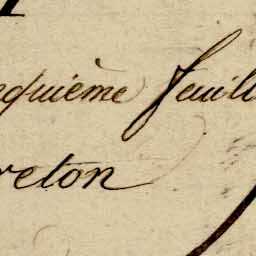 cquième feuill
reton